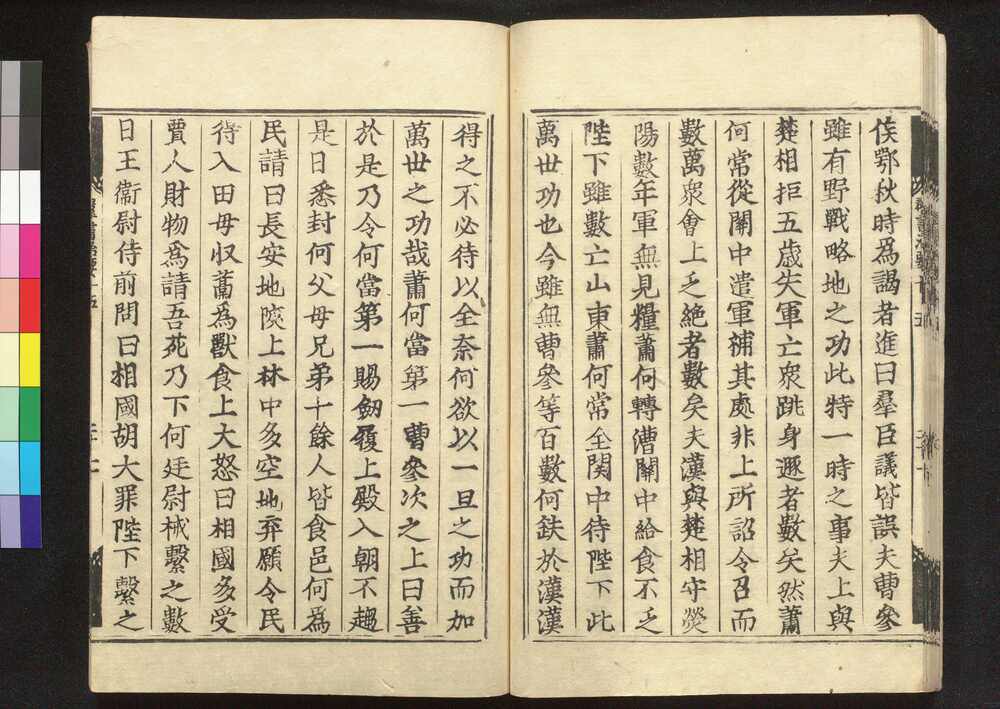 侯鄂秋時爲謁者進曰羣臣議皆誤夫曹參
雖有野戰略地之功此特一時之事夫上與
楚相拒五歲失軍亡衆跳身遯者數矣然蕭
何常從關中遣軍補其處非上所詔令召而
數萬衆會上乏絕者數矣夫漢與楚相守滎
陽數年軍無見糧蕭何轉漕關中給食不乏
陛下雖數亡山東蕭何常全関中待陛下此
萬世功也今雖無曹參等百數何鈌於漢漢
得之不必待以全奈何欲以一旦之功而加
萬世之功哉蕭何當第一曹參次之上曰善
於是乃令何當第一賜劒履上殿入朝不趨
是日悉封何父母兄弟十餘人皆食邑何爲
民請曰長安地陿上林中多空地弃願令民
得入田毋収藁爲獸食上大怒曰相國多受
賈人財物爲請吾苑乃下何廷尉械繫之數
日王衞尉侍前問曰相國胡大罪陛下繫之